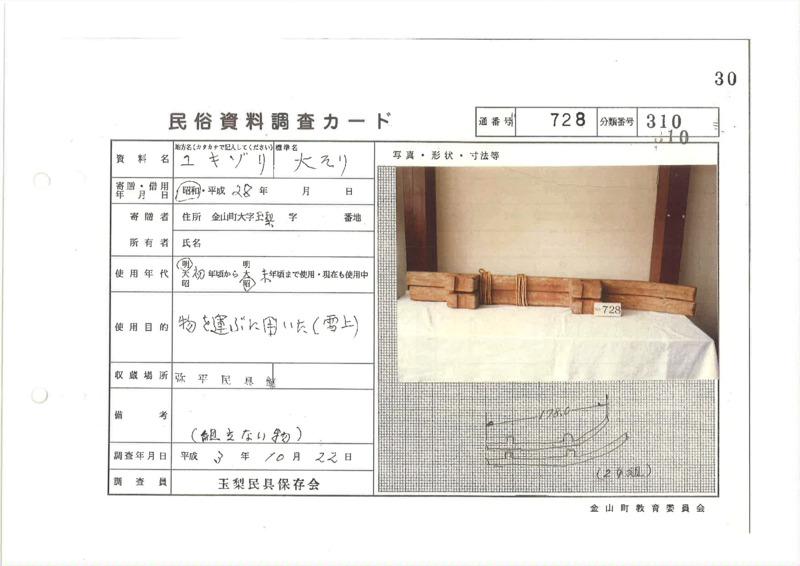 30
民俗資料調査カード
通番号 728 分類番号 310
310
資料名 地方名(カタカナで記入してください) 標準名
ユキゾリ 大そり
写真・形状・寸法等
寄贈・借用 年月日 昭和・平成 28年 月 日
寄贈者 住所 金山町大字玉梨 字 番地
所有者 氏名
使用年代 明 大 昭 初年頃から 明 大 昭 末年頃まで使用・現在も使用中
使用目的 物を運ぶに用いた(雪上)
収蔵場所 弥平民具館
備考 (組立ない物)
調査年月日 平成 3年 10月 22日
調査員 玉梨民具保存会
No 728
178.0
(2本組)
金山町教育委員会